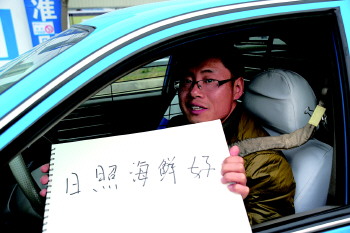 准
日照海鲜好